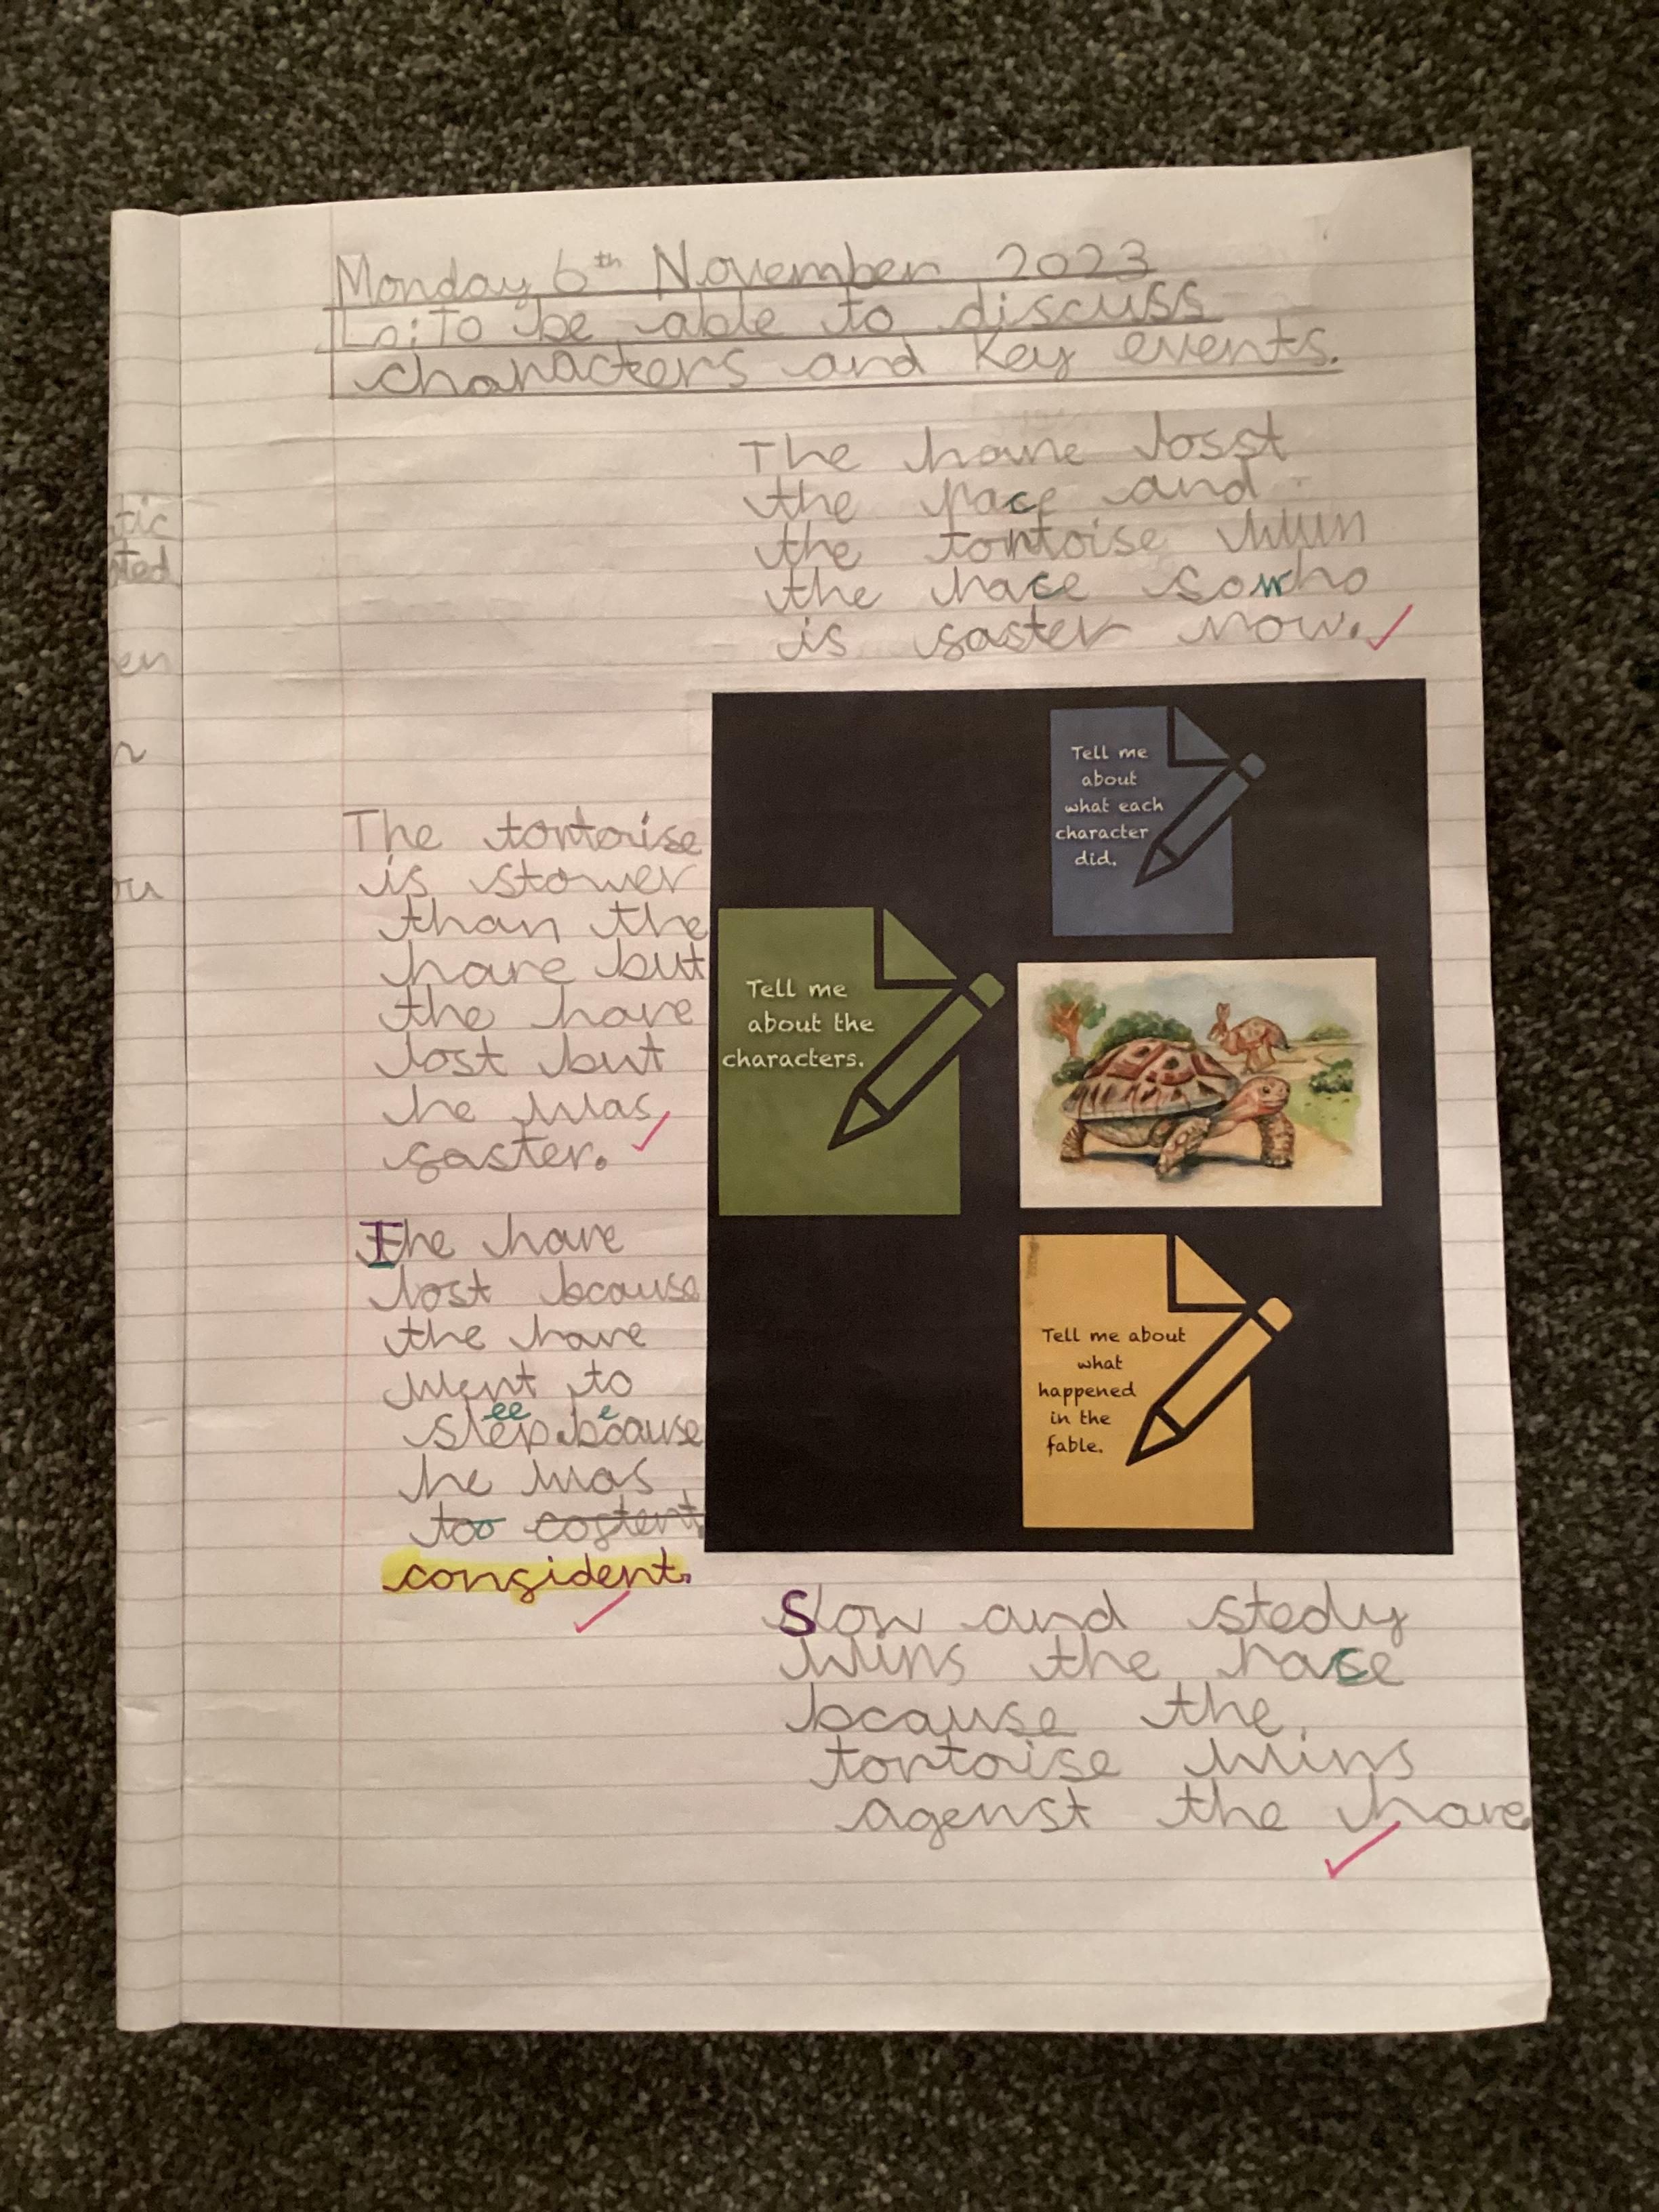 Monday 6th November 2023
Lo: To be able to discuss
characters and key events.
The hare losst
the race and
the tortoise wun
the race so who
is faster now.
Tell me
about
what each
character
did.
The tortoise
is slower
than the
hare but
the hare
lost but
he was
faster.
Tell me
about the
characters.
The hare
lost bcause
the hare
went to
sleep because
he was
too costent
confident.
Tell me about
what
happened
in the
fable.
Slow and stedy
wins the race
bcause the
tortoise wins
agenst the hare
tic
ted
en
r
ou